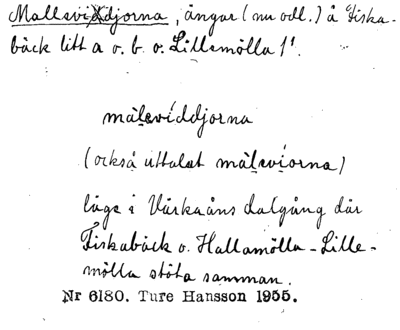 Malleviddjorna, ängar (nu odl.) å Fiska-
bäck litt a o. b o. Lillemölla 1¹.
mäḷevíddjorna
(också uttalat mäḷevíorna)
låge i Värkaåns dalgång där
Fiskabäck o. Hallamölla - Lille-
mölla stöta samman.
Nr 6180. Ture Hansson 1955.